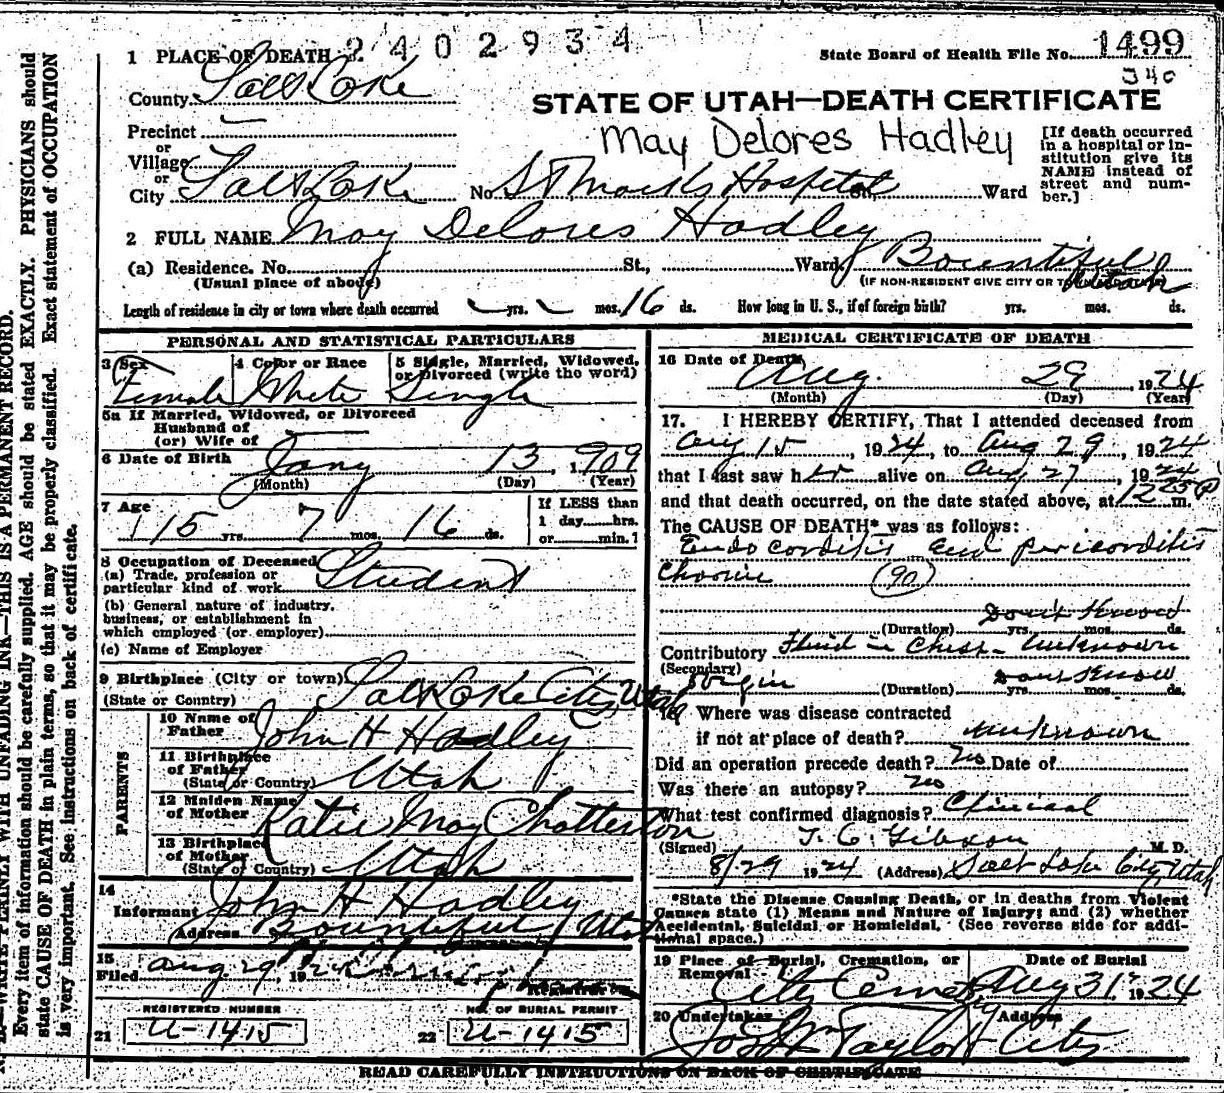 1 PLACE OF DEATH 2402934
State Board of Health File No. 1499
340
County Salt Lake
STATE OF UTAH—DEATH CERTIFICATE
May Delores Hadley
Precinct
or
Village
or
City Salt Lake No. St Marks Hospital St., Ward
[If death occurred in a hospital or institution give its NAME instead of street and number.]
2 FULL NAME May Delores Hadley
(a) Residence. No. St., Ward, Bountiful Utah
(Usual place of abode) (IF NON-RESIDENT GIVE CITY OR
Length of residence in city or town where death occurred yrs. mos. 16 ds. How long in U. S., if of foreign birth? yrs. mos. ds.
PERSONAL AND STATISTICAL PARTICULARS
3 Sex Female
4 Color or Race White
5 Single, Married, Widowed, or Divorced (write the word) Single
5a If Married, Widowed, or Divorced
Husband of
(or) Wife of
6 Date of Birth Jany 13, 1909
(Month) (Day) (Year)
7 Age 15 yrs. 7 mos. 16 ds.
If LESS than
1 day hrs.
or min.?
8 Occupation of Deceased
(a) Trade, profession or
particular kind of work Student
(b) General nature of industry,
business, or establishment in
which employed (or employer)
(c) Name of Employer
9 Birthplace (City or town) Salt Lake City, Utah
(State or Country)
PARENTS
10 Name of Father John H Hadley
11 Birthplace of Father Utah
(State or Country)
12 Maiden Name of Mother Katie May Chatterton
13 Birthplace of Mother Utah
(State or Country)
14
Informant John H Hadley
Address Bountiful Utah
15
Filed Aug. 29, 1924
Registrar
REGISTERED NUMBER
21 U-1415
NO. OF BURIAL PERMIT
22 U-1415
MEDICAL CERTIFICATE OF DEATH
16 Date of Death Aug. 29, 1924
(Month) (Day) (Year)
17. I HEREBY CERTIFY, That I attended deceased from
Aug 15, 1924, to Aug 29, 1924
that I last saw her alive on Aug 27, 1924
and that death occurred, on the date stated above, at 1225 P m.
The CAUSE OF DEATH* was as follows:
Endocarditis and pericarditis
(90)
Dont Know
(Duration) yrs. mos. ds.
Contributory Fluid in Chest - unknown
(Secondary) origin Dont Know
(Duration) yrs. mos. ds.
18 Where was disease contracted
if not at place of death? unknown
Did an operation precede death? No Date of
Was there an autopsy? no
What test confirmed diagnosis? Clinical
(Signed) T. C. Gibson M. D.
8/29 1924 (Address) Salt Lake City, Utah
*State the Disease Causing Death, or in deaths from Violent
Causes state (1) Means and Nature of Injury; and (2) whether
Accidental, Suicidal or Homicidal. (See reverse side for addi-
tional space.)
19 Place of Burial, Cremation, or Removal City Cemetery
Date of Burial Aug 31st 1924
20 Undertaker Jos Wm Taylor
Address City
READ CAREFULLY INSTRUCTIONS ON BACK OF CERTIFICATE
WRITE PLAINLY WITH UNFADING INK—THIS IS A PERMANENT RECORD.
Every item of information should be carefully supplied. AGE should be stated EXACTLY. PHYSICIANS should
state CAUSE OF DEATH in plain terms, so that it may be properly classified. Exact statement of OCCUPATION
is very important. See instructions on back of certificate.